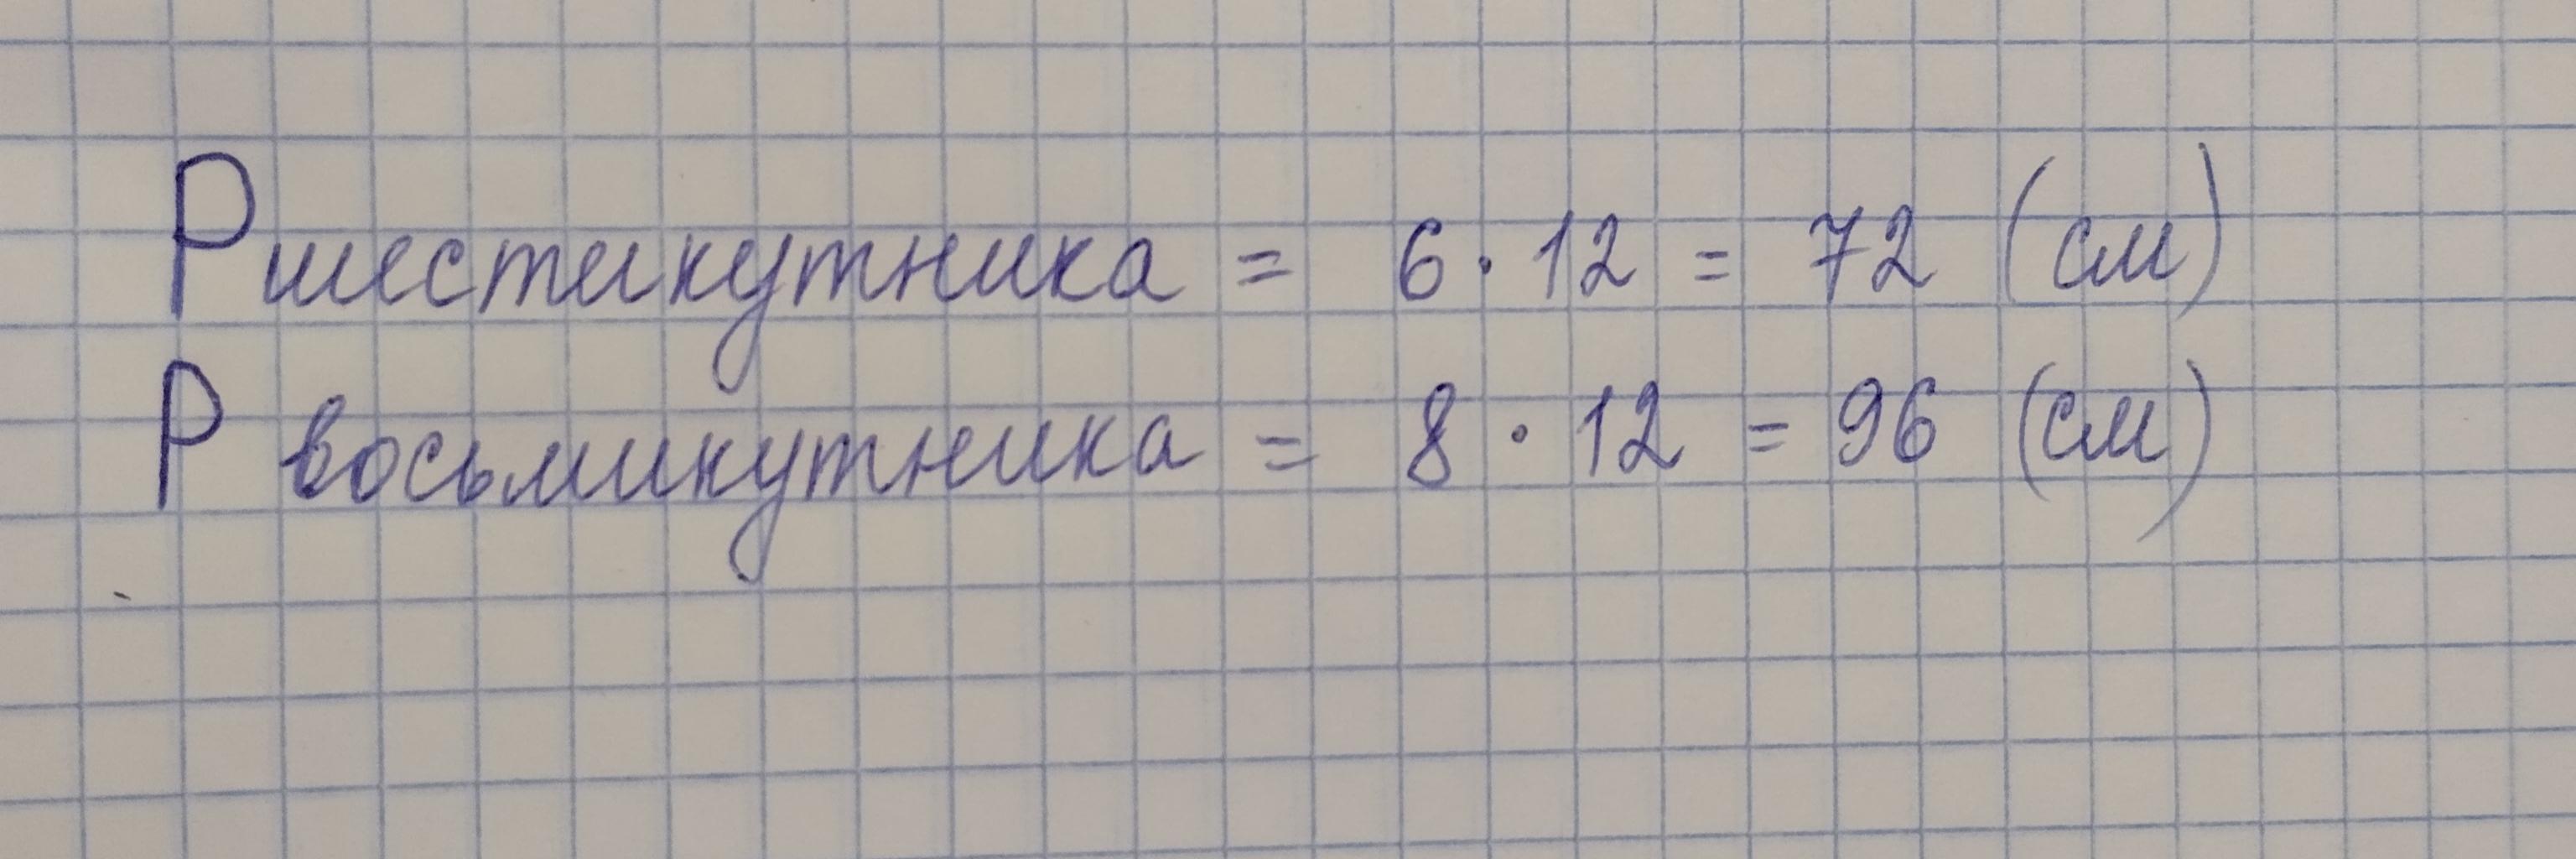 Ршестикутника = 6 · 12 = 72 (см)
Р восьмикутника = 8 · 12 = 96 (см)